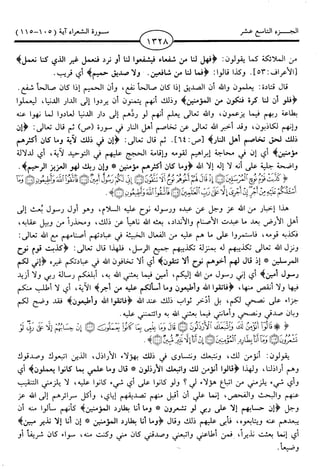 الجزء التاسع عشر
١٣٢٨
سورة الشعراء آية (١٠٥-١١٥)
من الملائكة كما يقولون: ﴿فهل لنا من شفعاء فيشفعوا لنا أو نرد فنعمل غير الذي كنا نعمل﴾
[الأعراف: ٥٣]. وكذا قالوا: ﴿فما لنا من شافعين. ولا صديق حميم﴾ أي قريب.
قال قتادة: يعلمون والله أن الصديق إذا كان صالحاً نفع، وأن الحميم إذا كان صالحاً شفع.
﴿فلو أن لنا كرة فنكون من المؤمنين﴾ وذلك أنهم يتمنون أن يردوا إلى الدار الدنيا، ليعملوا
بطاعة ربهم فيما يزعمون، والله تعالى يعلم أنهم لو ردهم إلى دار الدنيا لعادوا لما نهوا عنه
وإنهم لكاذبون، وقد أخبر الله تعالى عن تخاصم أهل النار في سورة (ص) ثم قال تعالى: ﴿إن
ذلك لحق تخاصم أهل النار﴾ [ص: ٦٤]. ثم قال تعالى: ﴿إن في ذلك لآية وما كان أكثرهم
مؤمنين﴾ أي إن في محاجة إبراهيم لقومه وإقامة الحجج عليهم في التوحيد لآية، أي لدلالة
واضحة جلية على أنه لا إله إلا الله ﴿وما كان أكثرهم مؤمنين * وإن ربك لهو العزيز الرحيم﴾.
هذا إخبار من الله عز وجل عن عبده ورسوله نوح عليه السلام، وهو أول رسول بُعث إلى
أهل الأرض بعد ما عبدت الأصنام والأنداد، بعثه الله ناهياً عن ذلك، ومحذراً من وبيل عقابه،
فكذبه قومه، فاستمروا على ما هم عليه من الفعال الخبيثة في عبادتهم أصنامهم مع الله تعالى:
ونزل الله تعالى تكذيبهم له بمنزلة تكذيبهم جميع الرسل، فلهذا قال تعالى: ﴿كذبت قوم نوح
المرسلين * إذ قال لهم أخوهم نوح ألا تتقون﴾ أي ألا تخافون الله في عبادتكم غيره ﴿إني لكم
رسول أمين﴾ أي إني رسول من الله إليكم، أمين فيما بعثني الله به، أبلغكم رسالة ربي ولا أزيد
فيها ولا أنقص منها، ﴿فاتقوا الله وأطيعون وما أسألكم عليه من أجر﴾ الآية، أي لا أطلب منكم
جزاء على نصحي لكم، بل أدخر ثواب ذلك عند الله ﴿فاتقوا الله وأطيعون﴾ فقد وضح لكم
وبان صدقي ونصحي وأمانتي فيما بعثني الله به وائتمنني عليه.
يقولون: أنؤمن لك، ونتبعك ونتساوى في ذلك بهؤلاء الأراذل، الذين اتبعوك وصدقوك
وهم أراذلنا، ولهذا ﴿قالوا أنؤمن لك واتبعك الأرذلون * قال وما علمي بما كانوا يعملون﴾ أي
وأي شيء يلزمني من اتباع هؤلاء لي ؟ ولو كانوا على أي شيء كانوا عليه، لا يلزمني التنقيب
عنهم والبحث والفحص، إنما علي أن أقبل منهم تصديقهم إياي، وأكل سرائرهم إلى الله عز
وجل ﴿إن حسابهم إلا على ربي لو تشعرون * وما أنا بطارد المؤمنين﴾ كأنهم سألوا منه أن
يبعدهم عنه ويتابعوه، فأبى عليهم ذلك وقال ﴿وما أنا بطارد المؤمنين * إن أنا إلا نذير مبين﴾
أي إنما بعثت نذيراً، فمن أطاعني واتبعني وصدقني كان مني وكنت منه، سواء كان شريفاً أو
وضيعاً.